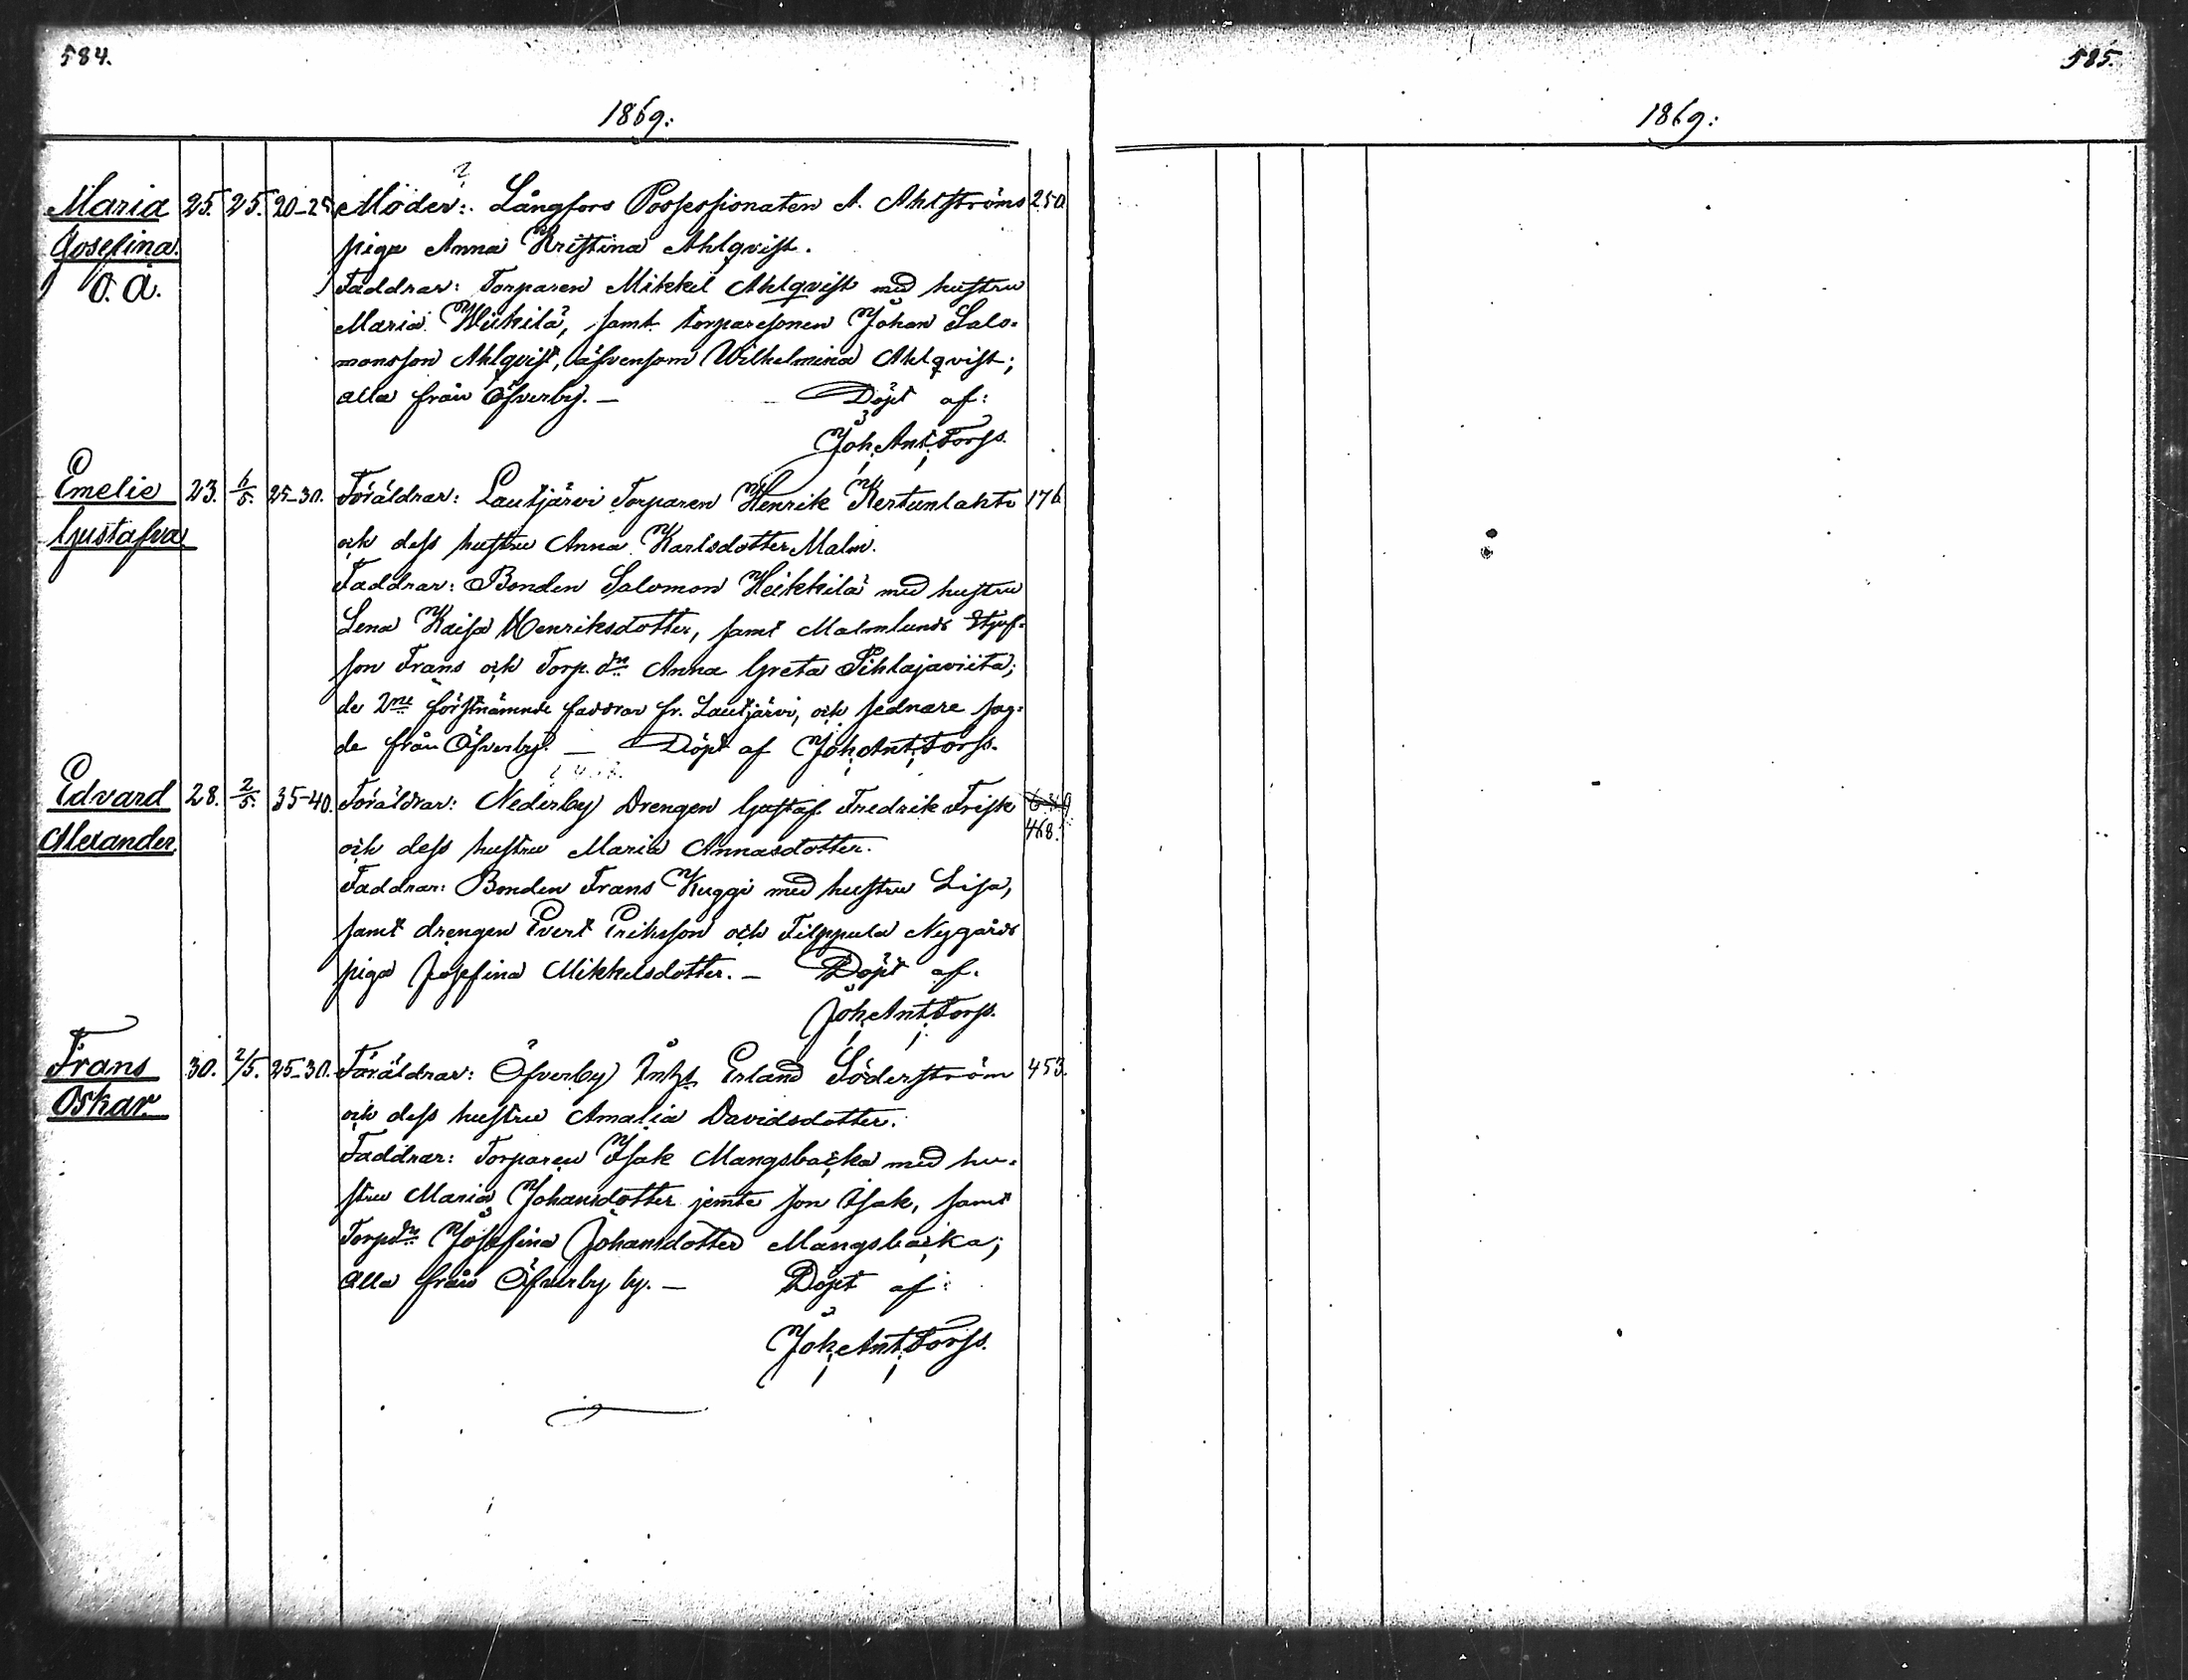 584.
585.
1869:
1869:
Maria 25. 25. 20-25 Moder: Långfors Possessionaten A. Ahlströms 250
Josefina. piga Anna Kristina Ahlqvist.
O. Ä. Faddrar: Torparen Mikkel Ahlqvist med hustru
Maria Wiikilä, samt torparesonen Johan Salo-
monsson Ahlqvist, äfvensom Wilhelmina Ahlqvist;
alla från Öfverby. — Döpt af:
Joh. Ant. Forss.
Emelie 23. 6/5. 25-30. Föräldrar: Lautjärvi Torparen Henrik Kertunlahti 176
Gustafva och dess hustru Anna Karlsdotter Malm.
Faddrar: Bonden Salomon Heikkilä med hustru
Lena Kaisa Henriksdotter, samt Malmlunds Styf-
son Frans och Torp. dr Anna Greta Pihlajaviita;
de 2ne förstnämnde faddrar fr. Lautjärvi, och sednare sag-
de från Öfverby. — Döpt af Joh. Ant. Forss.
Edvard 28. 2/5. 35-40. Föräldrar: Nederby Drengen Gustaf Fredrik Frisk
468.
Alexander och dess hustru Maria Annasdotter.
Faddrar: Bonden Frans Kuggi med hustru Lisa,
samt drengen Evert Eriksson och Filppula Nygårds
piga Josefina Mikkelsdotter. — Döpt af.
Joh. Ant. Forss.
Frans 30. 2/5. 25-30. Föräldrar: Öfverby Inhs. Erland Söderström 453.
Oskar. och dess hustru Amalia Davidsdotter.
Faddrar: Torparen Isak Mangsbacka med hu-
stru Maria Johansdotter jemte son Isak, samt
Torpdr Josefina Johansdotter Mangsbacka;
alla från Öfverby by. — Döpt af:
Joh. Ant. Forss.